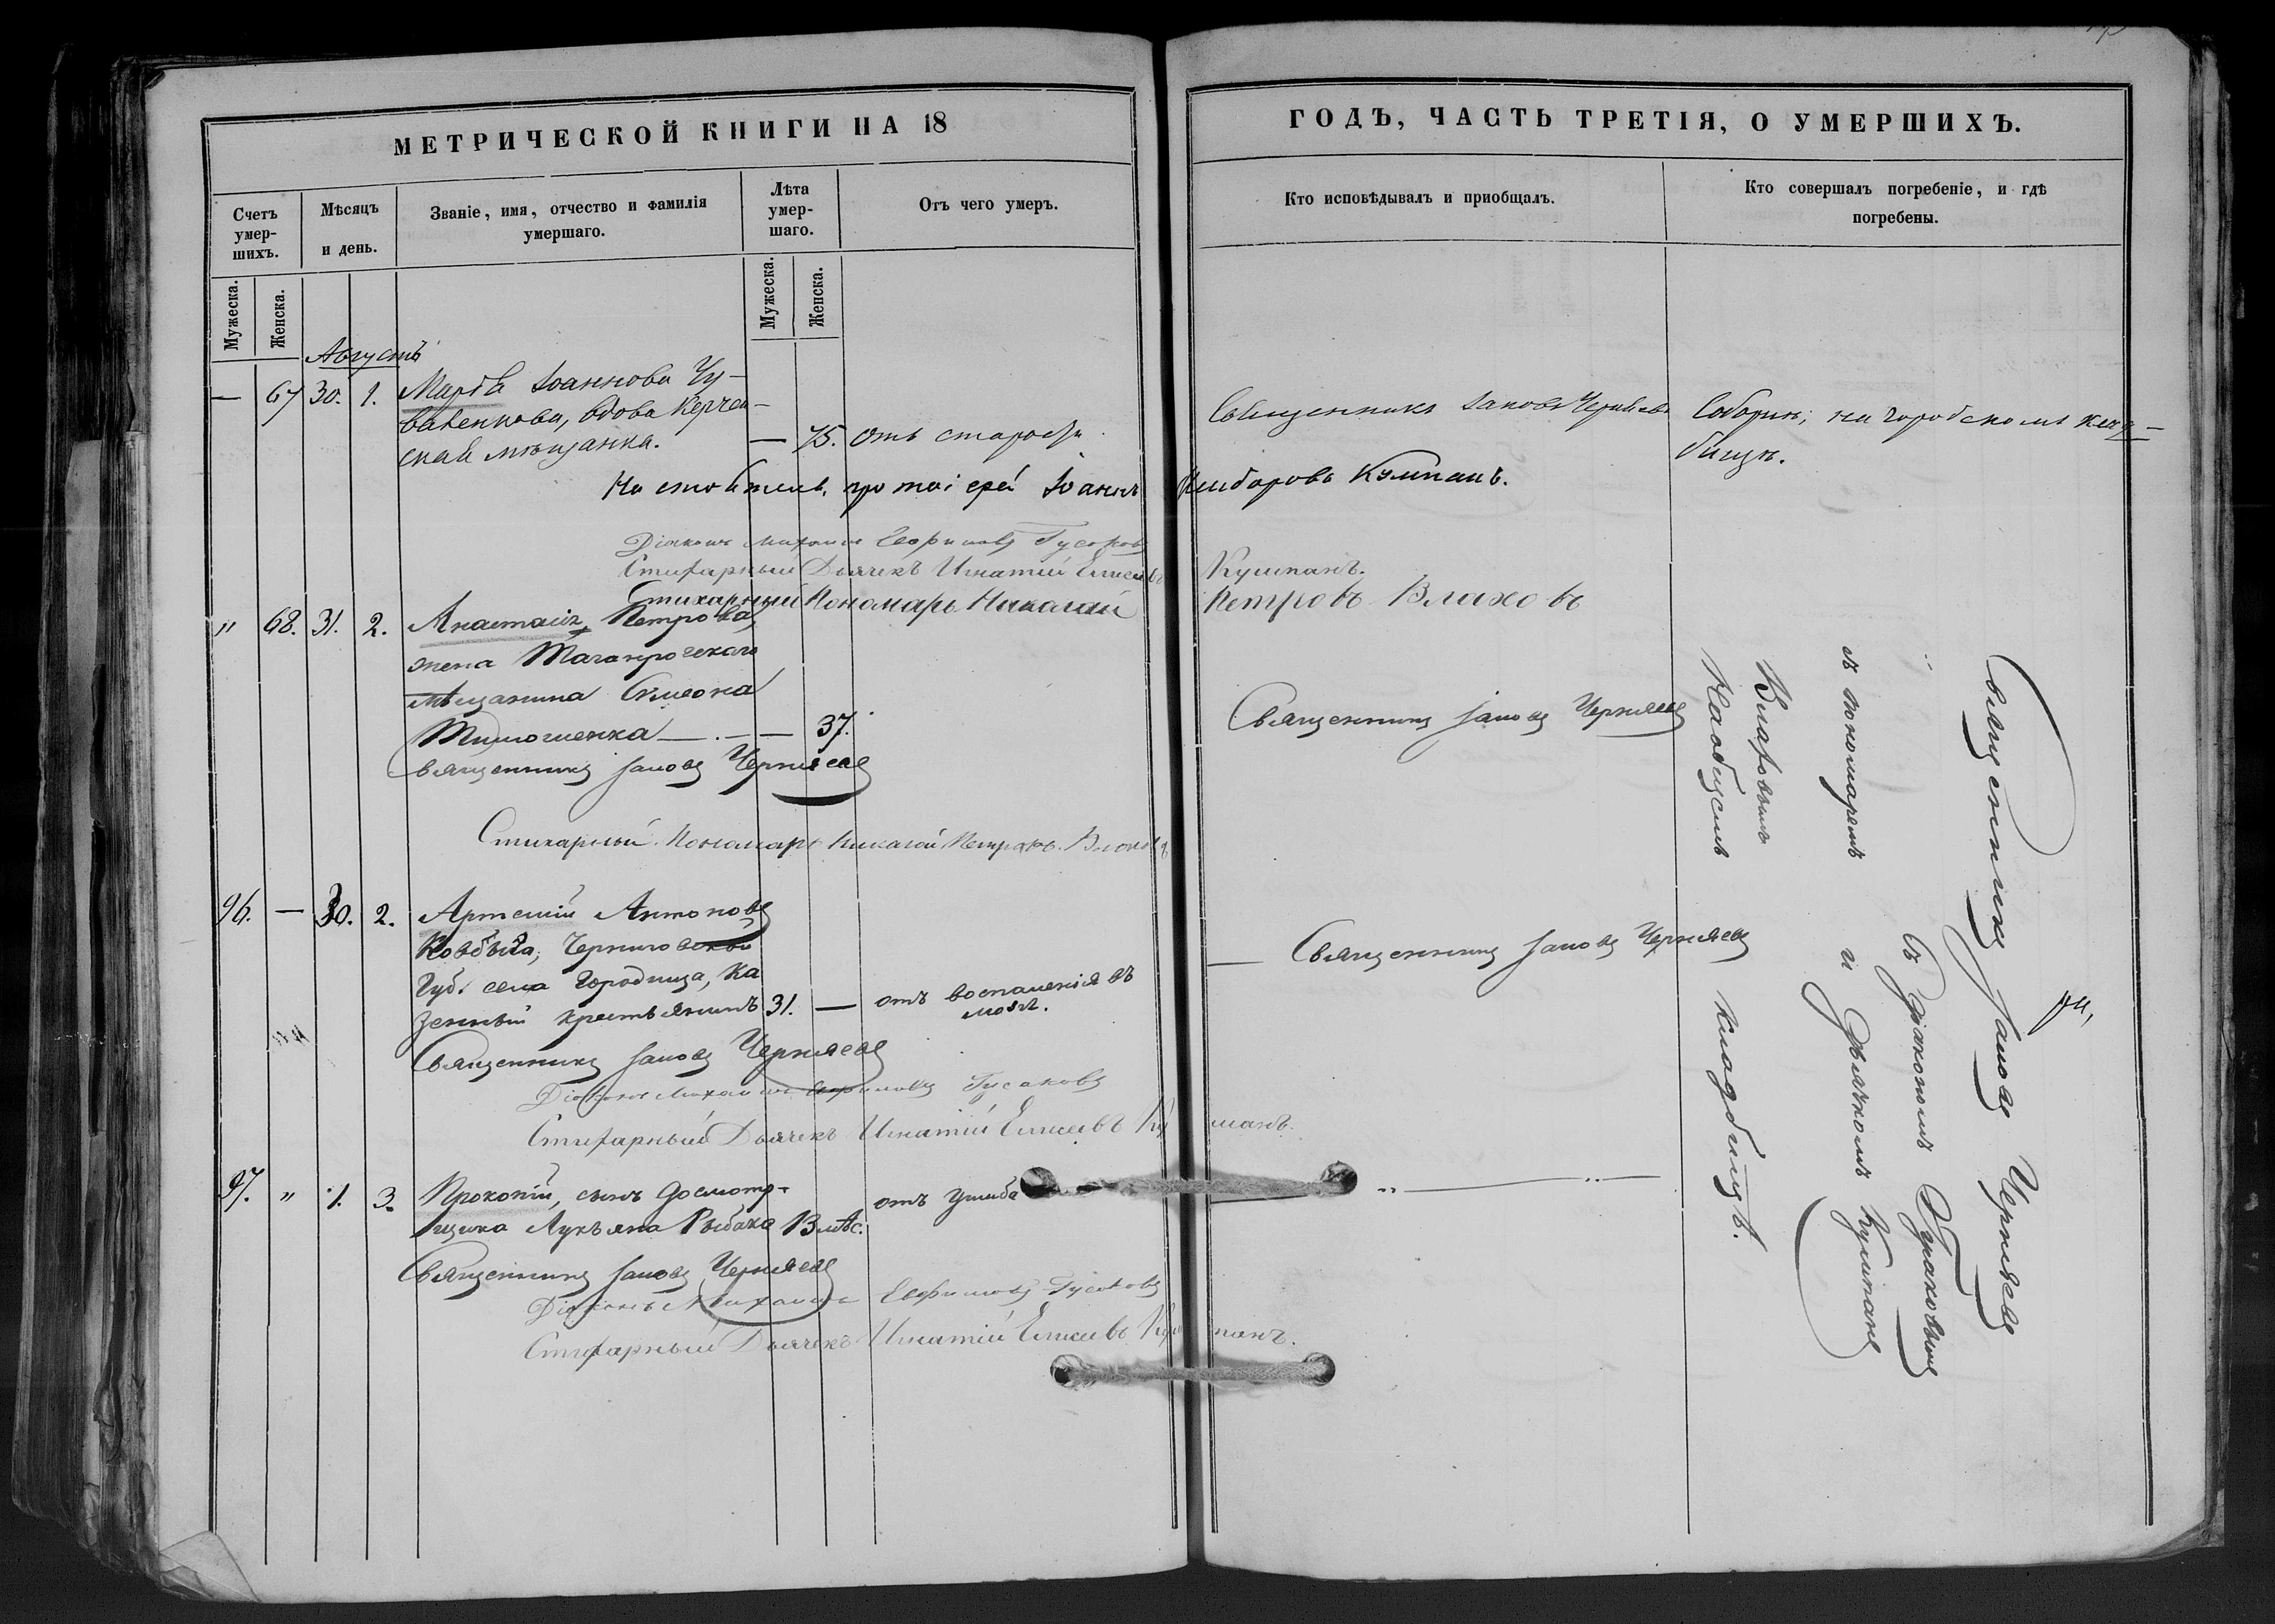 МЕТРИЧЕСКОЙ КНИГИ НА 18
Счетъ умер-
шихъ.
Мѣсяцъ
и день.
Званіе, имя, отчество и фамилія
умершаго.
Лѣта
умер-
шаго.
Отъ чего умеръ.
Мужеска.
Женска.
Мужеска.
Женска.
Августъ
— 67 30. 1. Марѳа Іоаннова Чу-
вова Керчен-
ская мѣщанка. — 75. отъ старости
протоіерей Іоаннъ
Діаконъ Михаилъ Евфимовъ Гусаковъ
Стихарный Дьячекъ Игнатій Елисеевъ
Стихарный Пономарь Николай
" 68. 31. 2. Анастасія Петрова,
жена Таганрогскаго
мѣщанина Симеона
Тимошенка — . — — 37.
Священникъ Іаковъ Черняевъ
Стихарный Пономарь Николай Петровъ Влаховъ
96. — 30. 2. Артемій Антоновъ
Ковбыса, Черниговской
Губ. села Городища, Ка
зенный крестьянинъ 31. — отъ воспаленія въ
мозгѣ.
Священникъ Іаковъ Черняевъ
Діаконъ Михаилъ Евфимовъ Гусаковъ
Стихарный Дьячекъ Игнатій Елисеевъ
97. " 1. 3. Прокопій, сынъ досмотр-
щика Лукьяна Рыбака 3 мѣс. отъ ушиба
Священникъ Іаковъ Черняевъ
Діаконъ Михаилъ Евфимовъ Гусаковъ
Стихарный Дьячекъ Игнатій Елисеевъ
ГОДЪ, ЧАСТЬ ТРЕТІЯ, О УМЕРШИХЪ.
Кто исповѣдывалъ и пріобщалъ.
Кто совершалъ погребеніе, и гдѣ
погребены.
Священникъ Іаковъ Черняевъ
Соборнѣ; на городскомъ клад-
бищѣ.
Кумпанъ.
Кумпанъ.
Петровъ Влаховъ
Священникъ Іаковъ Черняевъ
— Священникъ Іаковъ Черняевъ
Священникъ Іаковъ Черняевъ
съ Діакономъ Гусаковымъ
и Дьячкомъ Кумпанъ
и пономаремъ
Влаховымъ
На общемъ кладбищѣ.